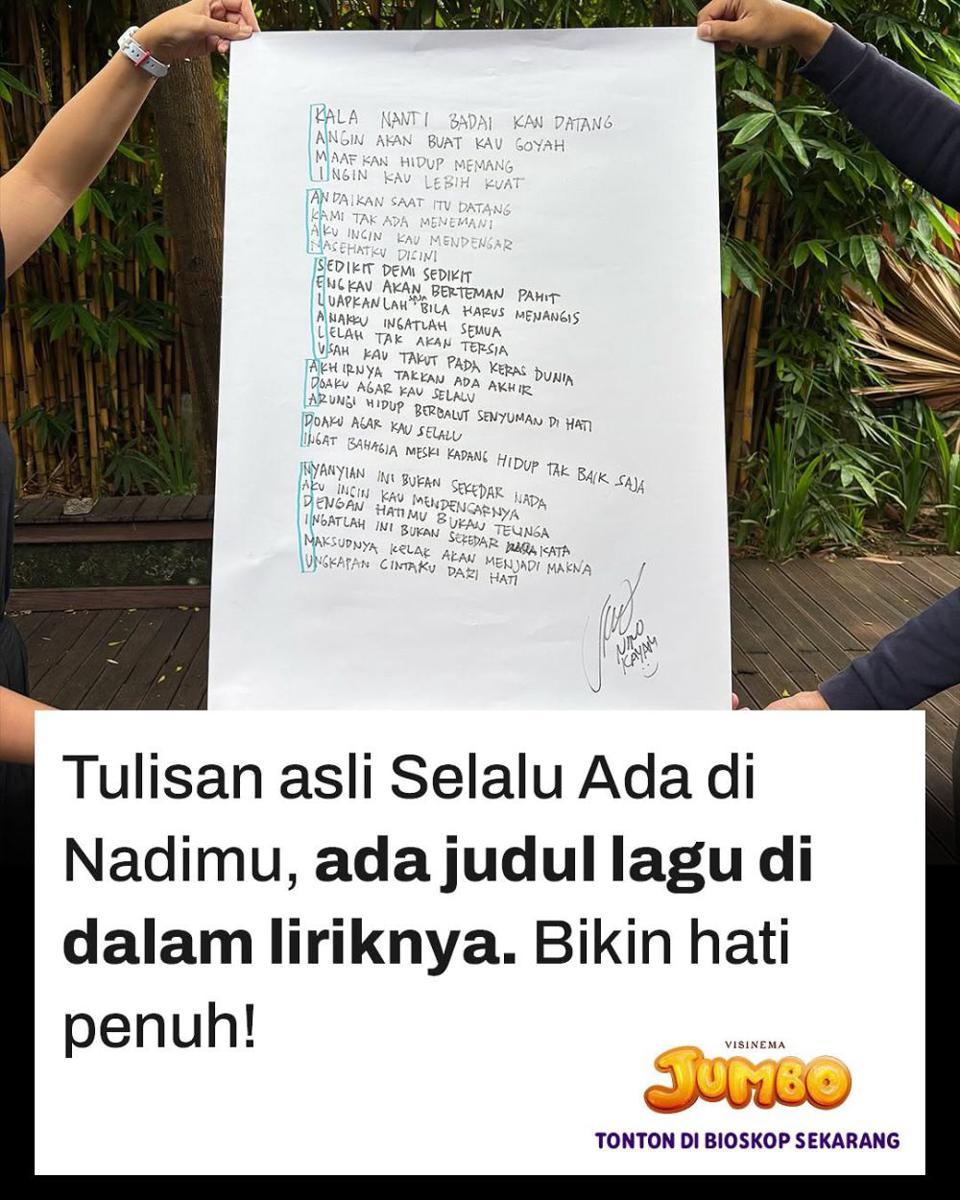 KALA NANTI BADAI KAN DATANG
ANGIN AKAN BUAT KAU GOYAH
MAAFKAN HIDUP MEMANG
INGIN KAU LEBIH KUAT
ANDAIKAN SAAT ITU DATANG
KAMI TAK ADA MENEMANI
AKU INGIN KAU MENDENGAR
NASEHATKU DISINI
SEDIKIT DEMI SEDIKIT
ENGKAU AKAN BERTEMAN PAHIT
LUAPKANLAH SAJA BILA HARUS MENANGIS
ANAKKU INGATLAH SEMUA
LELAH TAK AKAN TERSIA
USAH KAU TAKUT PADA KERAS DUNIA
AKHIRNYA TAKKAN ADA AKHIR
DOAKU AGAR KAU SELALU
ARUNGI HIDUP BERBALUT SENYUMAN DI HATI
DOAKU AGAR KAU SELALU
INGAT BAHAGIA MESKI KADANG HIDUP TAK BAIK SAJA
NYANYIAN INI BUKAN SEKEDAR NADA
AKU INGIN KAU MENDENGARNYA
DENGAN HATIMU BUKAN TELINGA
INGATLAH INI BUKAN SEKEDAR KATA
MAKSUDNYA KELAK AKAN MENJADI MAKNA
UNGKAPAN CINTAKU DARI HATI
NINO
KAYAM
Tulisan asli Selalu Ada di
Nadimu, ada judul lagu di
dalam liriknya. Bikin hati
penuh!
VISINEMA
JUMBO
TONTON DI BIOSKOP SEKARANG